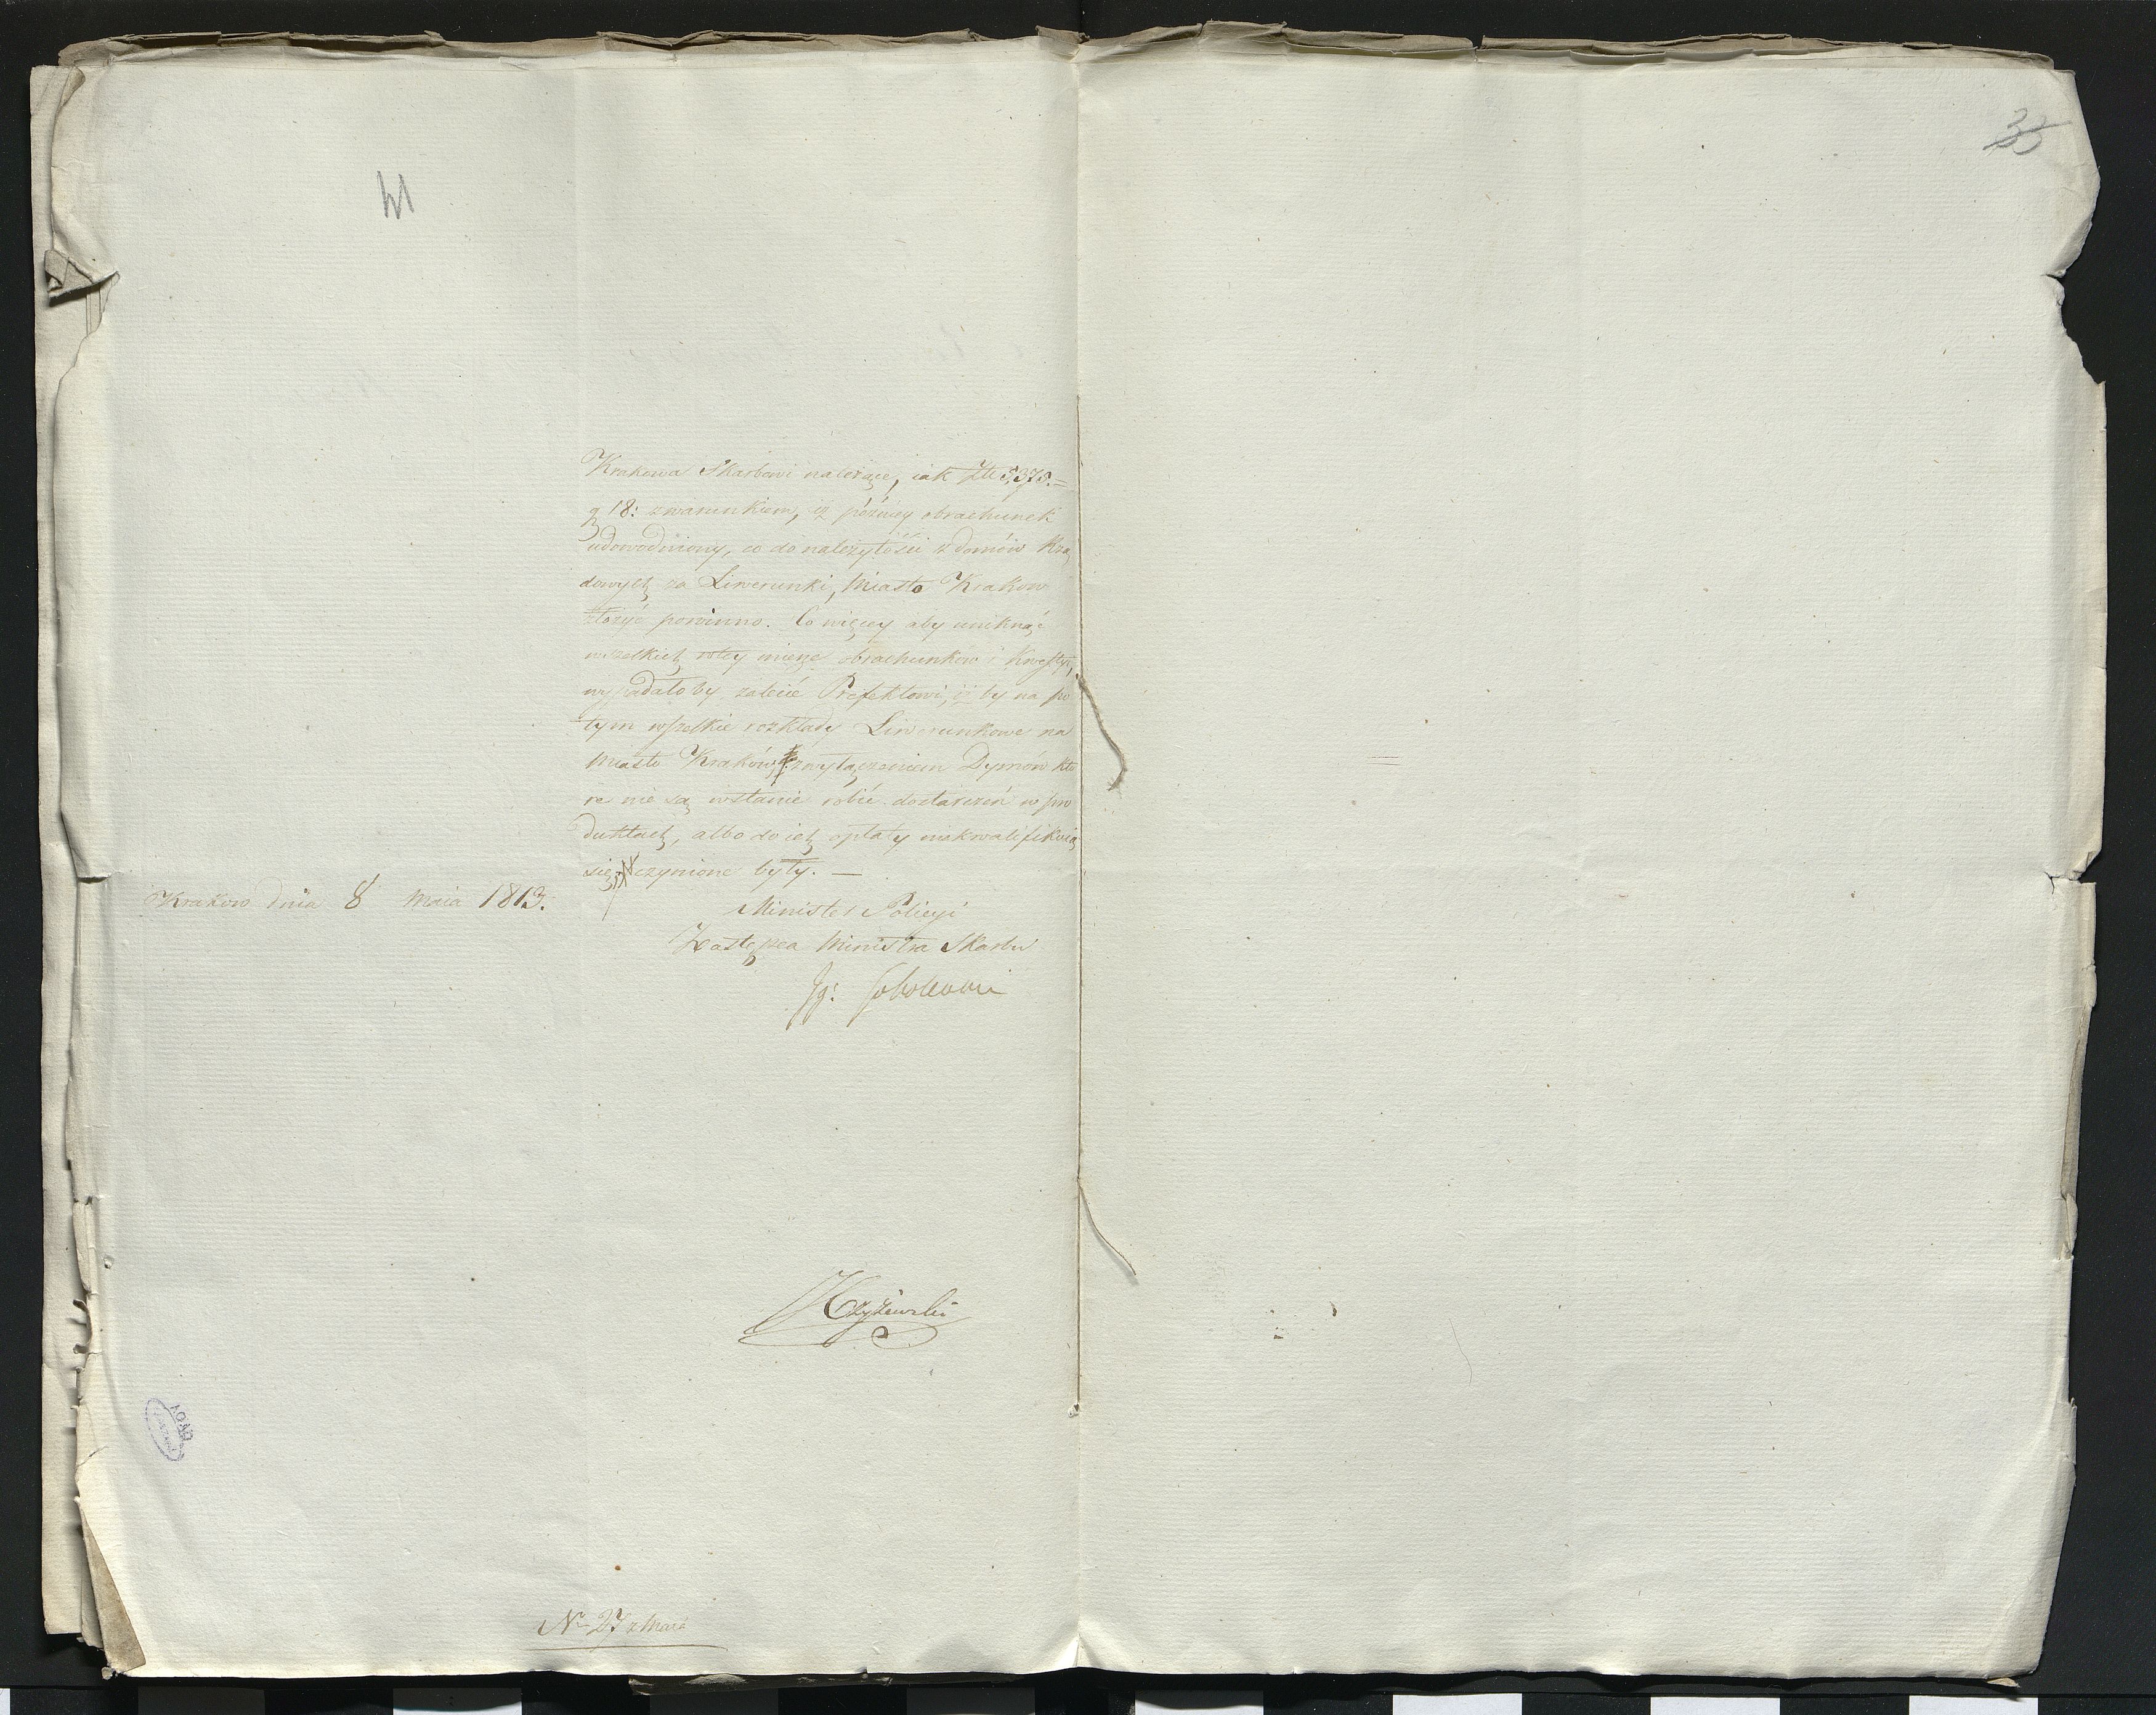 33
Krakowa Skarbowi należące, iak Złł 5,375.=
g 18: zwarunkiem, iż późniey obrachunek
udowodniony, co do należytości z domów Rzą
dowych za Liwerunki, Miasto Krakow
złożyć powinno. Co więcey aby uniknąć
wszelkich w tey mierze obrachunków i Kwestyi,
wypadałoby zalecić Prefektowi, iż by na po
tym wszelkie rozkłady Liwerunkowe na
Miasto Kraków z wyłączeniem Dymów któ
re nie są wstanie robić dostarczeń w pro
duktach, albo do ich opłaty niekwalifikuią
się, czynione były. —
Krakow dnia 8 Maia 1813.
Minister Policyi
Zastępca Ministra Skarbu
Ig: Sobolewski
Czyżewski
Nr 27 z Maia